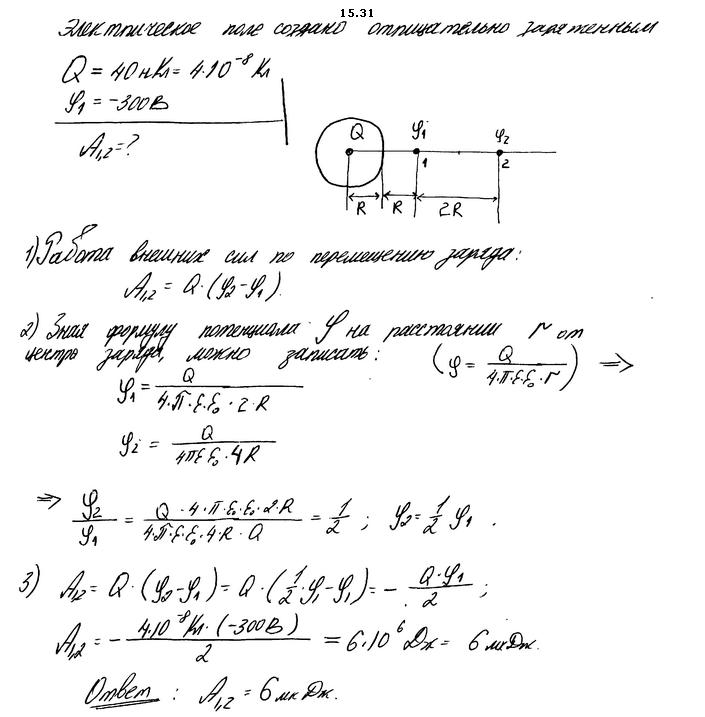 15.31
Электрическое поле создано отрицательно заряженным
Q = 40нКл = 4·10⁻⁸ Кл
φ₁ = -300В
A₁,₂ = ?
Q φ₁ φ₂
1 2
R R 2R
1) Работа внешних сил по перемещению заряда:
A₁,₂ = Q·(φ₂-φ₁).
2) Зная формулу потенциала φ на расстоянии r от
центра заряда, можно записать: (φ = Q / (4·π·ε·ε₀·r)) ⇒
φ₁ = Q / (4·π·ε·ε₀·2·R)
φ₂ = Q / (4πεε₀·4R)
⇒ φ₂/φ₁ = (Q·4·π·ε₀·ε·2·R) / (4·π·ε·ε₀·4·R·Q) = 1/2 ; φ₂ = 1/2 φ₁ .
3) A₁,₂ = Q·(φ₂-φ₁) = Q·(1/2·φ₁-φ₁) = - Q·φ₁/2 ;
A₁,₂ = - 4·10⁻⁸Кл·(-300В) / 2 = 6·10⁶ Дж = 6 мкДж.
Ответ : A₁,₂ = 6 мкДж.